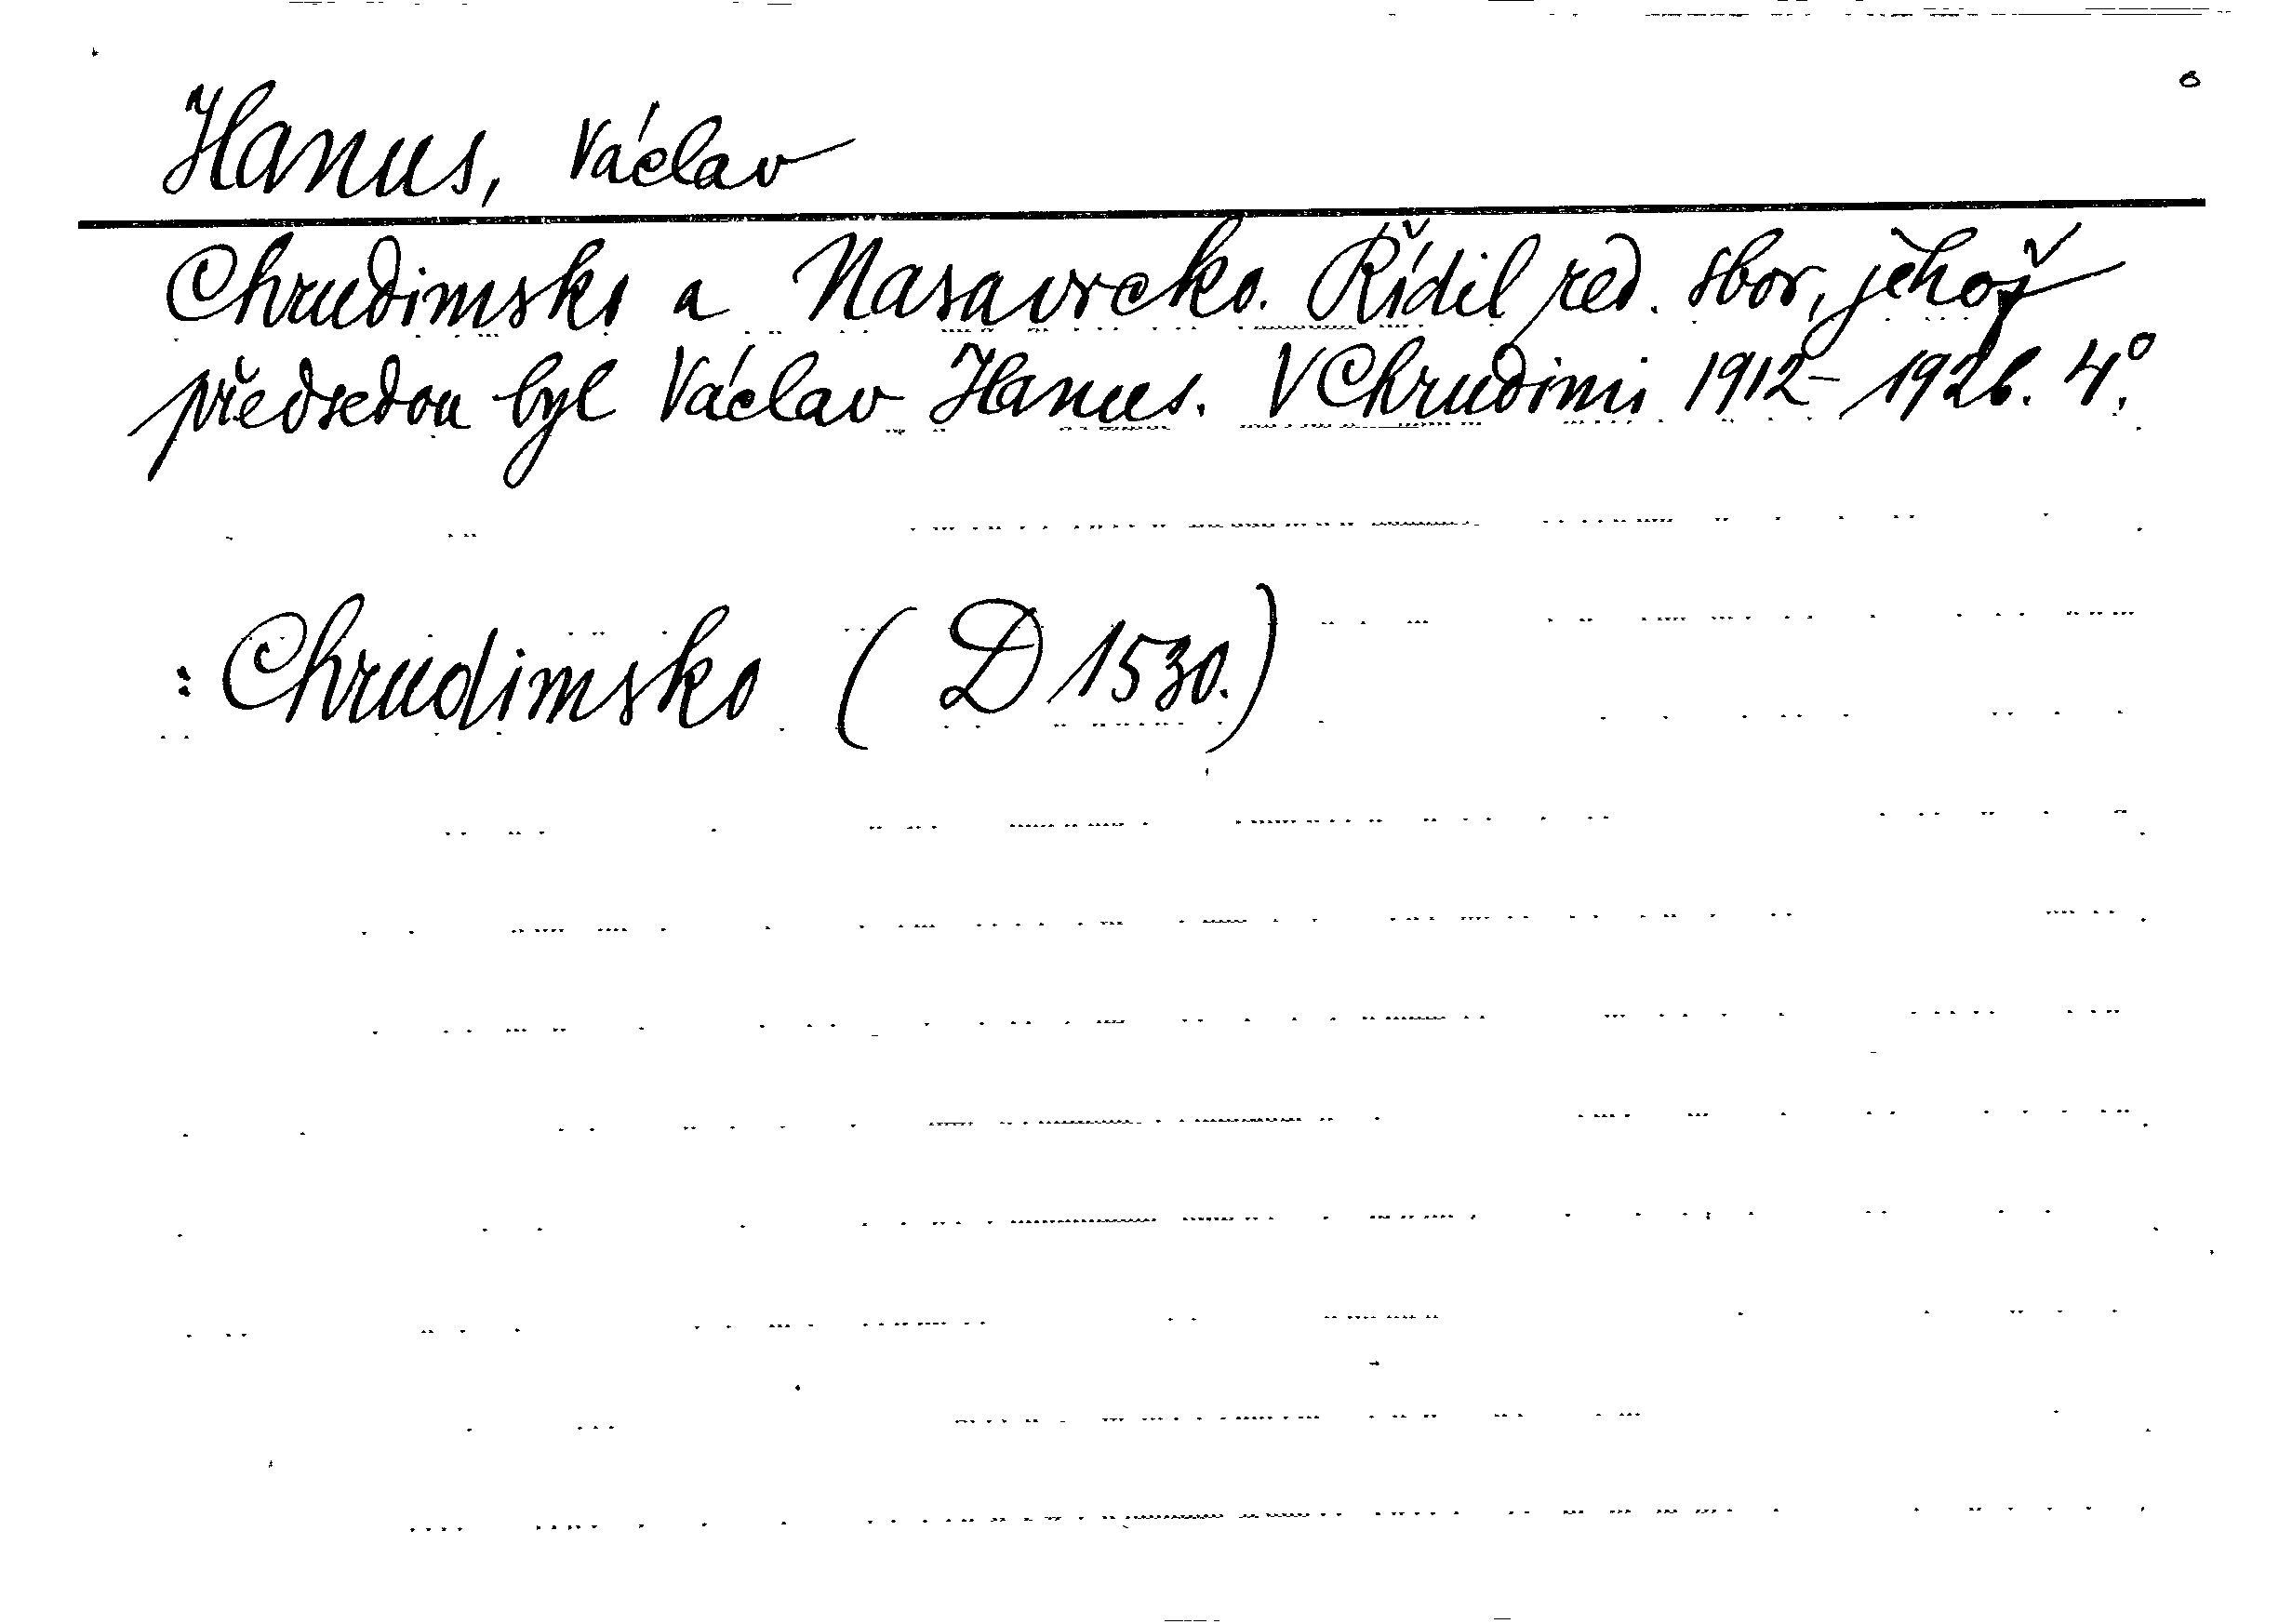 Hanus, Václav
Chrudimsko a Nasavrcko. Řídil red. sbor, jehož
předsedou byl Václav Hanus. V Chrudimi 1912-1926. 4°.
: Chrudimsko (D 1530.)